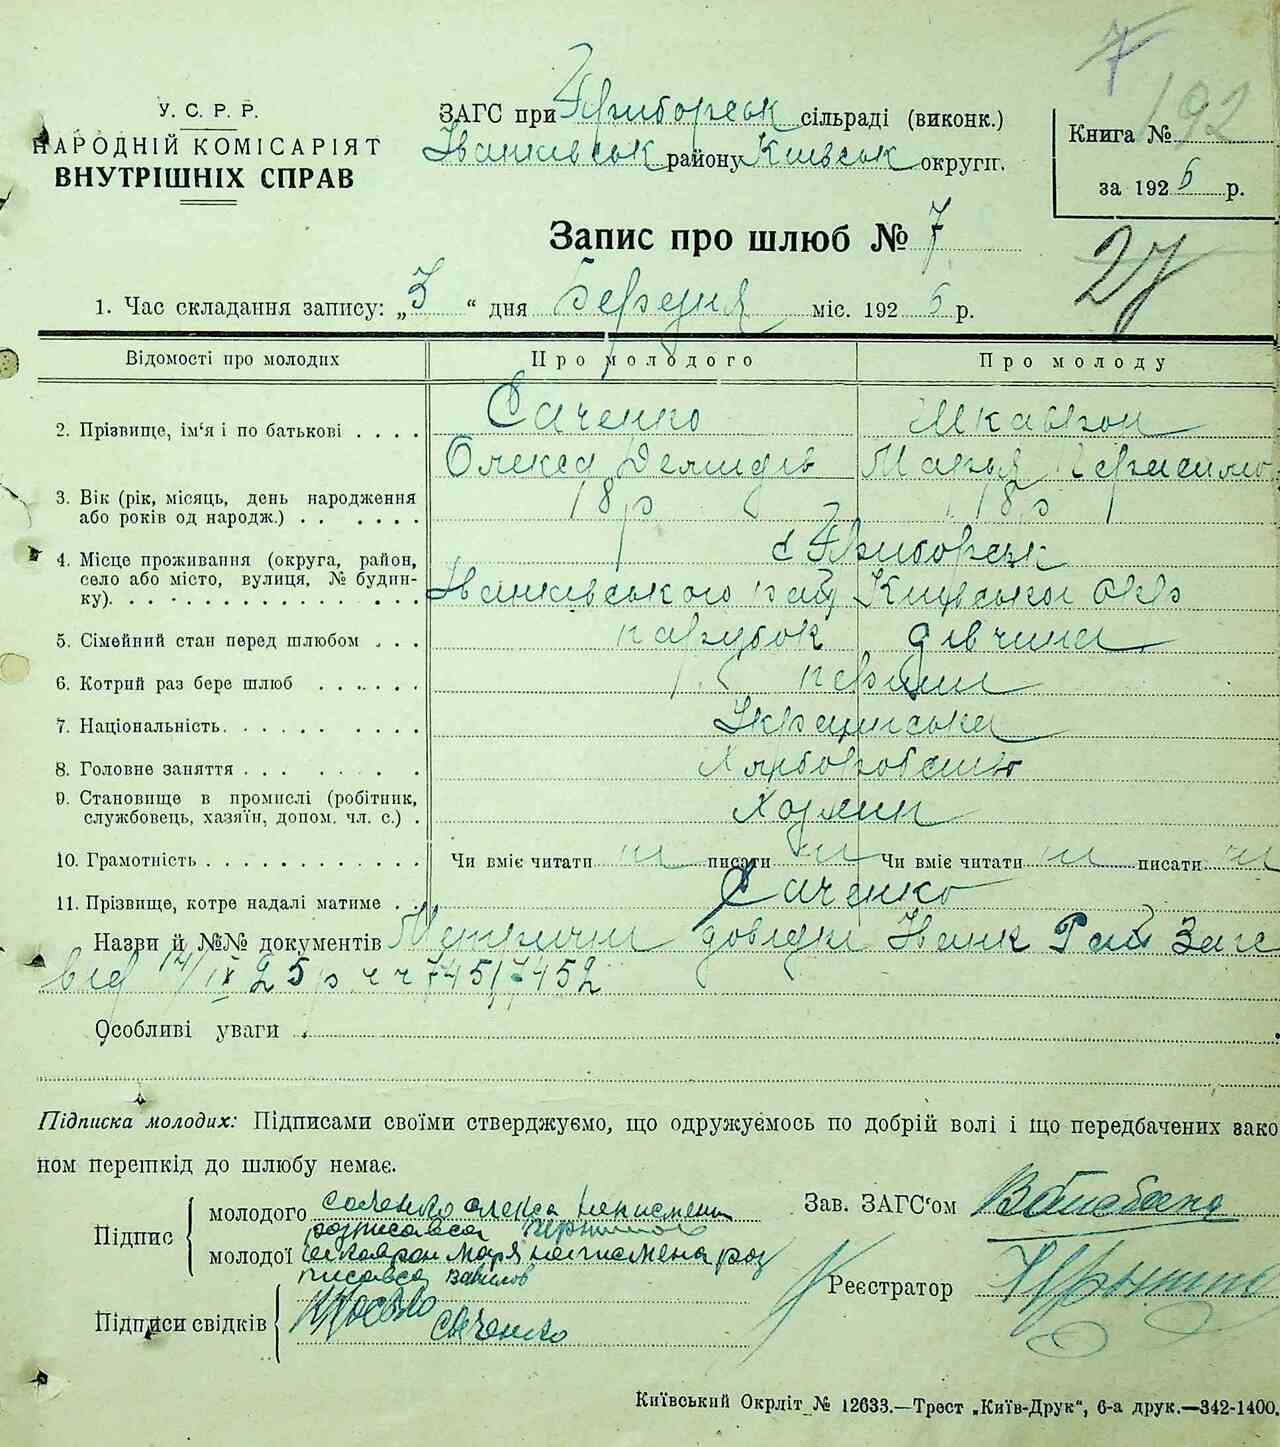 7
192
У. С. Р. Р.
НАРОДНІЙ КОМІСАРІЯТ
ВНУТРІШНІХ СПРАВ
ЗАГС при Приборськ сільраді (виконк.)
Іванківськ району Київськ округи.
Книга №
за 1926 р.
Запис про шлюб № 7
27
1. Час складання запису: „3“ дня Березня міс. 1926 р.
Відомості про молодих Про молодого Про молоду
2. Прізвище, ім‘я і по батькові . . . . Саченко Шкаврон
Олекса Демидів Марья Герасимов
3. Вік (рік, місяць, день народження або років од народж.) . . . . . . 18 р 18 р
4. Місце проживання (округа, район, село або місто, вулиця, № будинку). с Приборськ
Іванківського рай Київської окр
5. Сімейний стан перед шлюбом . . . парубок дівчина
6. Котрий раз бере шлюб . . . . . . перший
7. Національність. . . . . . . . . Українська
8. Головне заняття . . . . . . . . Хліборобство
9. Становище в промислі (робітник, службовець, хазяїн, допом. чл. с.) . Хозяин
10. Грамотність . . . . . . . . . . . . Чи вміє читати ні писати ні Чи вміє читати ні писати ні
11. Прізвище, котре надалі матиме . . Саченко
Назви й №№ документів Метричні довідки Іванк Рай Загс
від 14/IX 25 р ч ч 7451, 7452
Особливі уваги
Підписка молодих: Підписами своїми стверджуємо, що одружуємось по добрій волі і що передбачених зако
ном перешкід до шлюбу немає.
Підпис
молодого саченко олекса неписмени
розписавса
молодої шкаврон маря неписмена роз
писавса
Зав. ЗАГС‘ом
Реєстратор
Підписи свідків
Саченко
Київський Окрліт № 12633.—Трест „Київ-Друк“, 6-а друк.—342-1400.